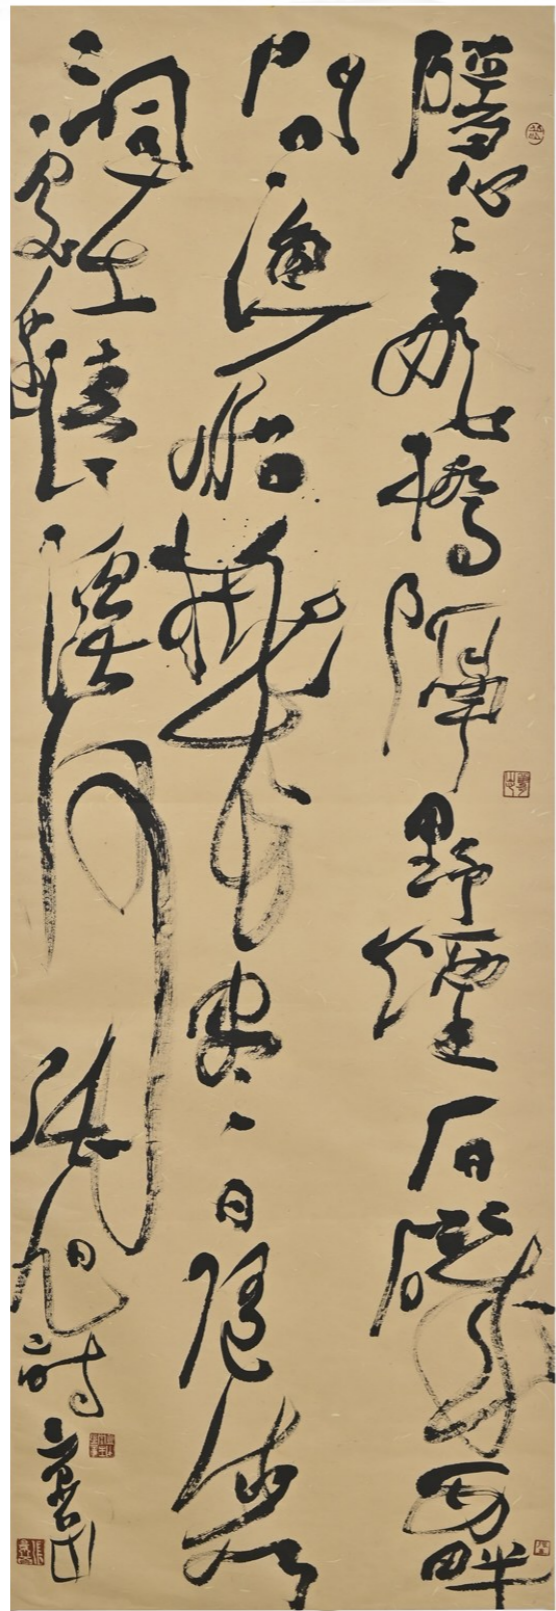 隱〻飛橋隔野煙石磯西畔
問漁船桃花盡日隨流水
洞在清溪何
處邊張旭詩